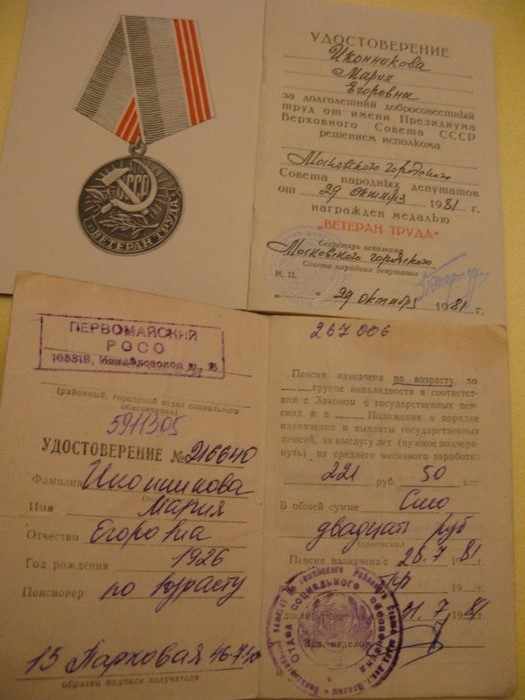 СССР
ВЕТЕРАН ТРУДА
УДОСТОВЕРЕНИЕ
Иконникова
Мария
Егоровна
за долголетний добросовестный
труд от имени Президиума
Верховного Совета СССР
решением исполкома
Московского городского
Совета народных депутатов
от „29" октября 1981 г.
награжден медалью
"ВЕТЕРАН ТРУДА"
Секретарь исполкома
Московского городского
Совета народных депутатов
М. П.
„29" октября 1981 г.
ПЕРВОМАЙСКИЙ
РОСО
(районный, городской отдел социального
обеспечения)
5911305
УДОСТОВЕРЕНИЕ № 216640
Фамилия Иконникова
Имя Мария
Отчество Егоровна
Год рождения 1926
Пенсионер по возрасту
образец подписи получателя
267006
Пенсия назначена по возрасту, по
группе инвалидности в соответст-
вии с Законом о государственных пен-
сиях и п. Положения о порядке
назначения и выплаты государственных
пенсий, за выслугу лет (нужное подчерк-
нуть) из среднего месячного заработка
221 руб. 50 коп.
В общей сумме Сто
двадцать руб
(прописью)
Пенсия назначена с 28.7 1981
ОТДЕЛ СОЦИАЛЬНОГО ОБЕСПЕЧЕНИЯ